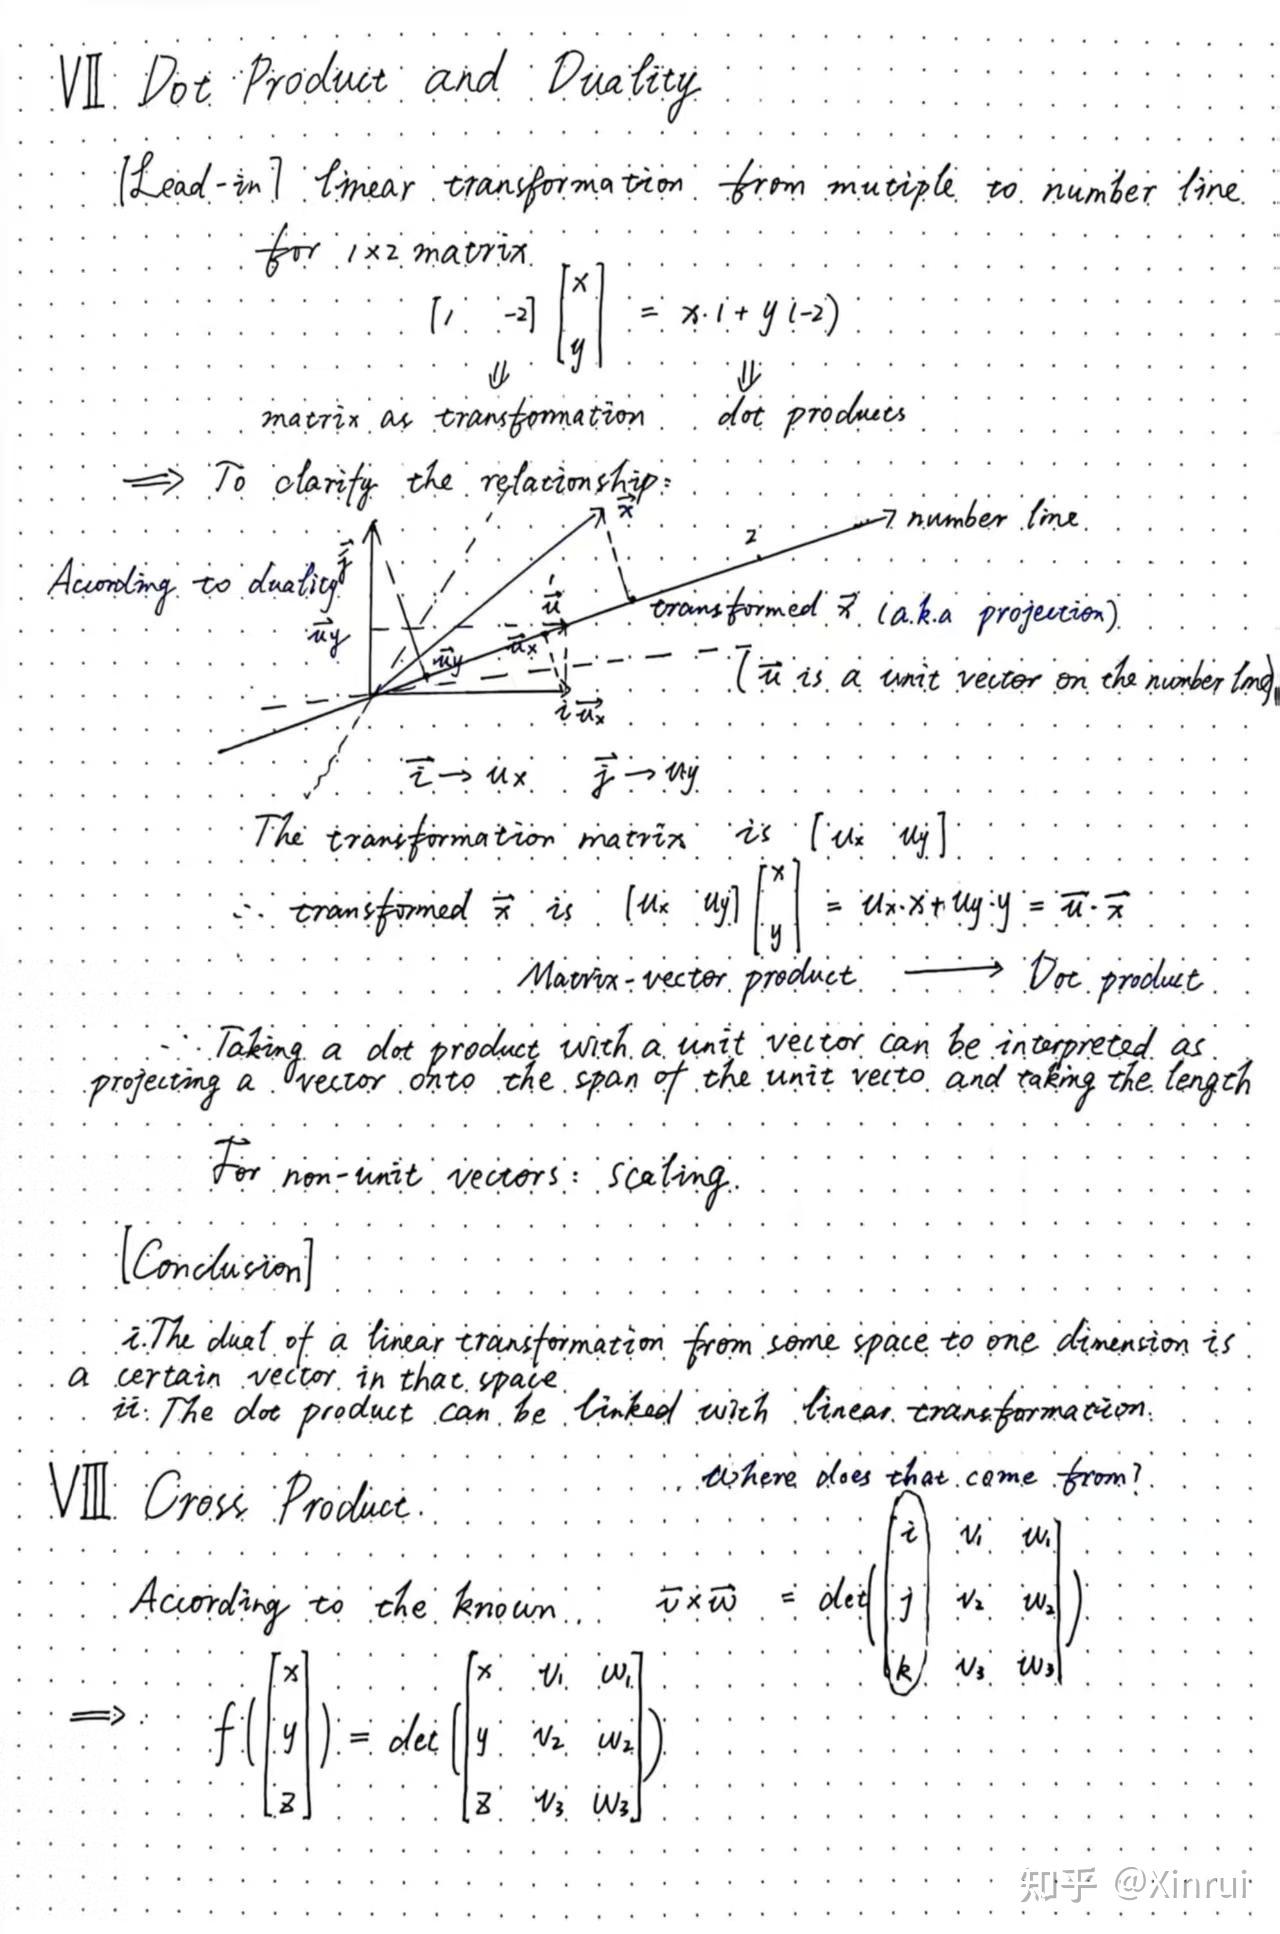 VII Dot Product and Duality
[Lead-in] linear transformation from mutiple to number line
for 1×2 matrix
[1 -2] [x y] = x·1 + y(-2)
⇓ ⇓
matrix as transformation dot products
⇒ To clarify the relationship:
x⃗
number line
2
According to duality
j⃗
1
u⃗
transformed x⃗ (a.k.a projection)
u⃗y
u⃗y
u⃗x
(u⃗ is a unit vector on the number line)
i u⃗x
i⃗ → ux j⃗ → uy
The transformation matrix is [ux uy]
∴ transformed x⃗ is [ux uy] [x y] = ux·x + uy·y = u⃗·x⃗
Matrix-vector product → Dot product
∴ Taking a dot product with a unit vector can be interpreted as
projecting a vector onto the span of the unit vecto and taking the length
For non-unit vectors: scaling.
[Conclusion]
i. The dual of a linear transformation from some space to one dimension is
a certain vector in that space
ii. The dot product can be linked with linear transformation.
Where does that come from?
VIII Cross Product.
According to the known v⃗×w⃗ = det([i v1 w1
j v2 w2
k v3 w3])
⇒ f([x y z]) = det([x v1 w1
y v2 w2
z v3 w3])
知乎 @Xinrui